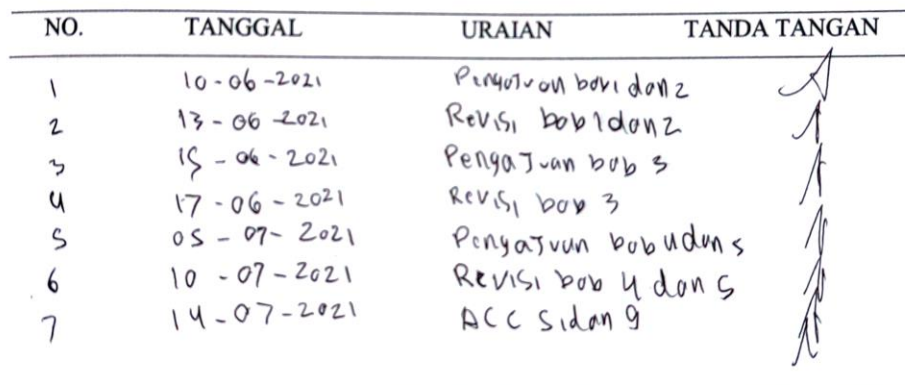 NO. TANGGAL URAIAN TANDA TANGAN
1 10-06-2021 Pengajuan bab 1 dan 2
2 13-06-2021 Revisi bab 1 dan 2
3 15-06-2021 Pengajuan bab 3
4 17-06-2021 Revisi bab 3
5 05-07-2021 Pengajuan bab 4 dan 5
6 10-07-2021 Revisi bab 4 dan 5
7 14-07-2021 ACC Sidang